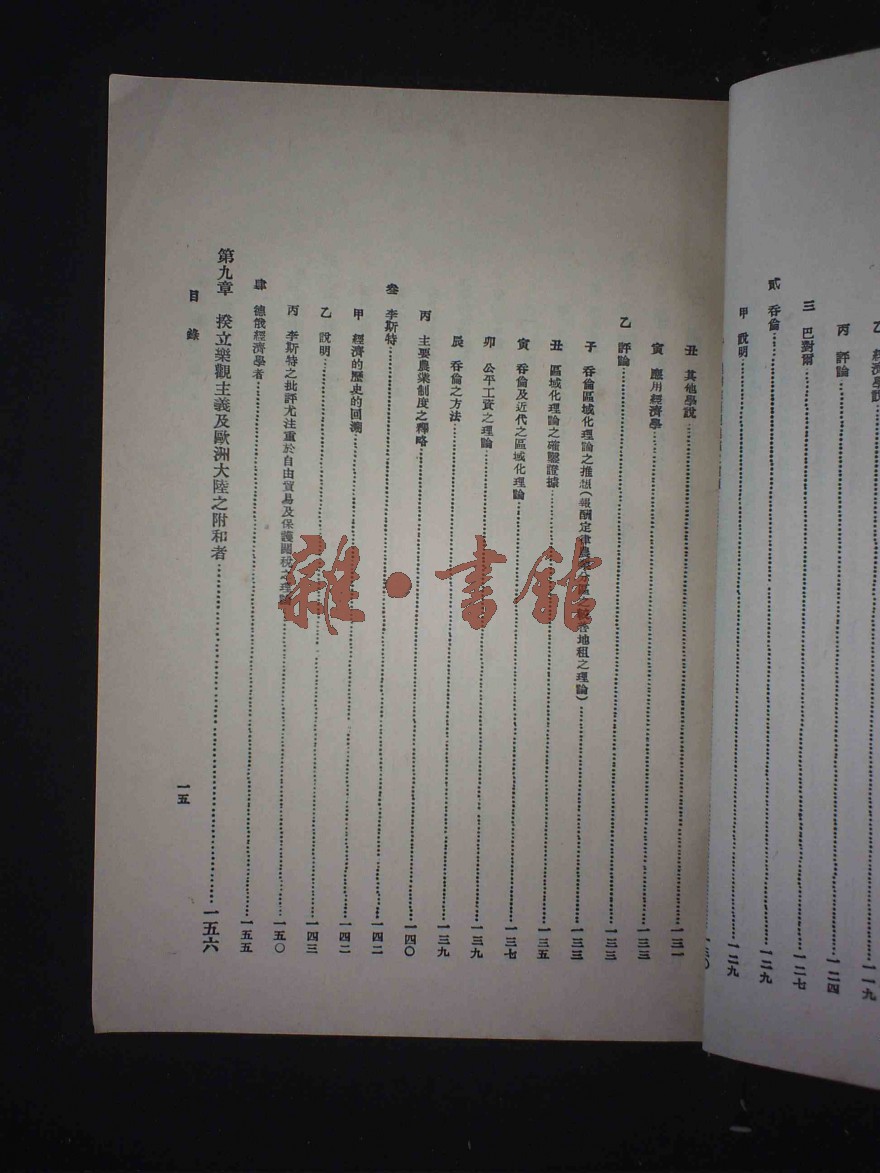 經濟學說……一一九
丙 評論……一二四
三 巴對爾……一二七
貳 呑倫……一二九
甲 說明……一二九
一三〇
丑 其他學說……一三一
寅 應用經濟學……一三三
乙 評論……一三三
子 呑倫區域化理論之推想(報酬定律農業分區之 地租之理論)……一三三
丑 區域化理論之確鑿證據……一三五
寅 呑倫及近代之區域化理論……一三七
卯 公平工資之理論……一三九
辰 呑倫之方法……一三九
丙 主要農業制度之釋略……一四〇
叁 李斯特……一四二
甲 經濟的歷史的回溯……一四二
乙 說明……一四三
丙 李斯特之批評尤注重於自由貿易及保護關稅之理論……一五〇
肆 德俄經濟學者……一五五
第九章 揆立樂觀主義及歐洲大陸之附和者……一五六
目錄
一五
雜·書館